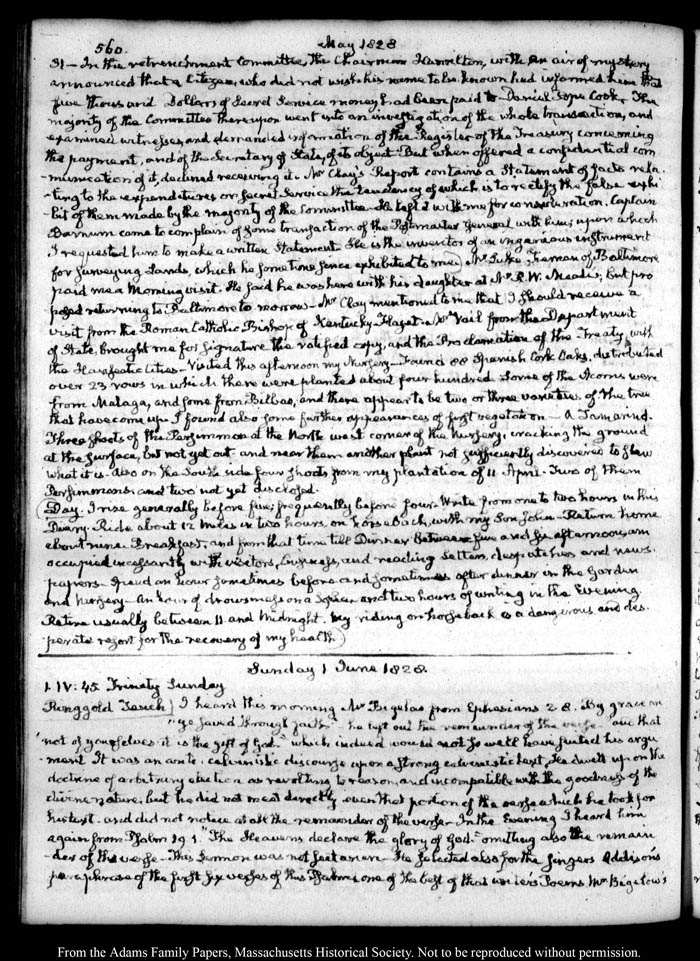 560.
May 1828
31 — In the retrenchment Committee, the Chairman Hamilton, with an air of mystery
announced that a Citizen, who did not wish his name to be known had informed him that
five thousand Dollars of Secret Service money had been paid to Daniel Pope Cook. The
majority of the Committee thereupon went into an investigation of the whole transaction, and
examined witnesses, and demanded information of the Register of the Treasury concerning
the payment, and of the Secretary of State, of its object. But when offered a confidential com
munication of it, declined receiving it. Mr Clay's Report contains a Statement of facts rela-
ting to the expenditures on Secret Service the tendency of which is to rectify the false exhi
bit of them made by the majority of the Committee. He left it with me for consideration. Captain
Barnum came to complain of some transaction of the Postmaster General with him; upon which
I requested him to make a written Statement. He is the inventor of an ingenious instrument
for surveying Lands, which he sometime since exhibited to me. Mr Luke Tiernan of Baltimore
paid me a morning visit. He said he was here with his daughter at Mr R. W. Meade's, but pro
posed returning to Baltimore to morrow — Mr Clay mentioned to me that I should receive a
visit from the Roman Catholic Bishop of Kentucky Flaget. Mr Vail from the Department
of State, brought me for signature the ratified copy, and the Proclamation of the Treaty with
the Hanseatic Cities — Visited this afternoon my Nursery — Found 88 Spanish Cork Oaks, distributed
over 23 rows in which there were planted about four hundred. Some of the Acorns were
from Malaga, and some from Bilbao, and there appear to be two or three varieties of the tree
that have come up. I found also some further appearances of first vegetation — A Tamarind.
Three shoots of the Persimmon at the North west corner of the Nursery, cracking the ground
at the surface, but not yet out and near them another plant not sufficiently discovered to shew
what it is. Also on the South side four shoots from my plantation of 11 April. Two of them
Persimmons and two not yet disclosed.
Day. I rise generally before five; frequently before four. Write from one to two hours in this
Diary. Ride about 12 miles in two hours on horseback, with my Son John. Return home
about nine. Breakfast, and from that time till Dinner between five and six afternoon, am
occupied incessantly with visitors, business, and reading letters, despatches and news-
papers. I spend an hour sometimes before and sometimes after dinner in the Garden
and Nursery — An hour of drowsiness on a Sopha, and two hours of writing in the Evening.
Retire usually between 11. and midnight. My riding on horseback is a dangerous and des-
perate resort for the recovery of my health
Sunday 1 June 1828.
1. IV: 45 Trinity Sunday
I heard this morning Mr Bigelow from Ephesians 2. 8. By grace are
"ye saved through faith" he left out the remainder of the verse "and that
"not of yourselves: it is the gift of God." which indeed would not so well have suited his argu-
ment. It was an anti-calvinistic discourse upon a strong calvinistic text. He dwelt upon the
doctrine of arbitrary election as revolting to reason, and incompatible with the goodness of the
divine nature; but he did not meet directly even that portion of the verse which he took for
his text, and did not notice at all the remainder of the verse. In the Evening I heard him
again from Psalm 19. 1. "The Heavens declare the glory of God." omitting also the remain-
der of the verse. This Sermon was not sectarian. He selected also for the singers Addison's
paraphrase of the first six verses of this Psalm, one of the best of that writer's Poems. Mr Bigelow's
From the Adams Family Papers, Massachusetts Historical Society. Not to be reproduced without permission.